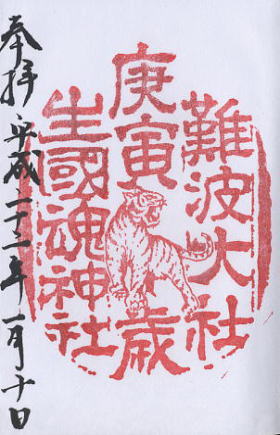 難波大社
庚寅歳
生國魂神社
奉拝 平成二十二年一月十日